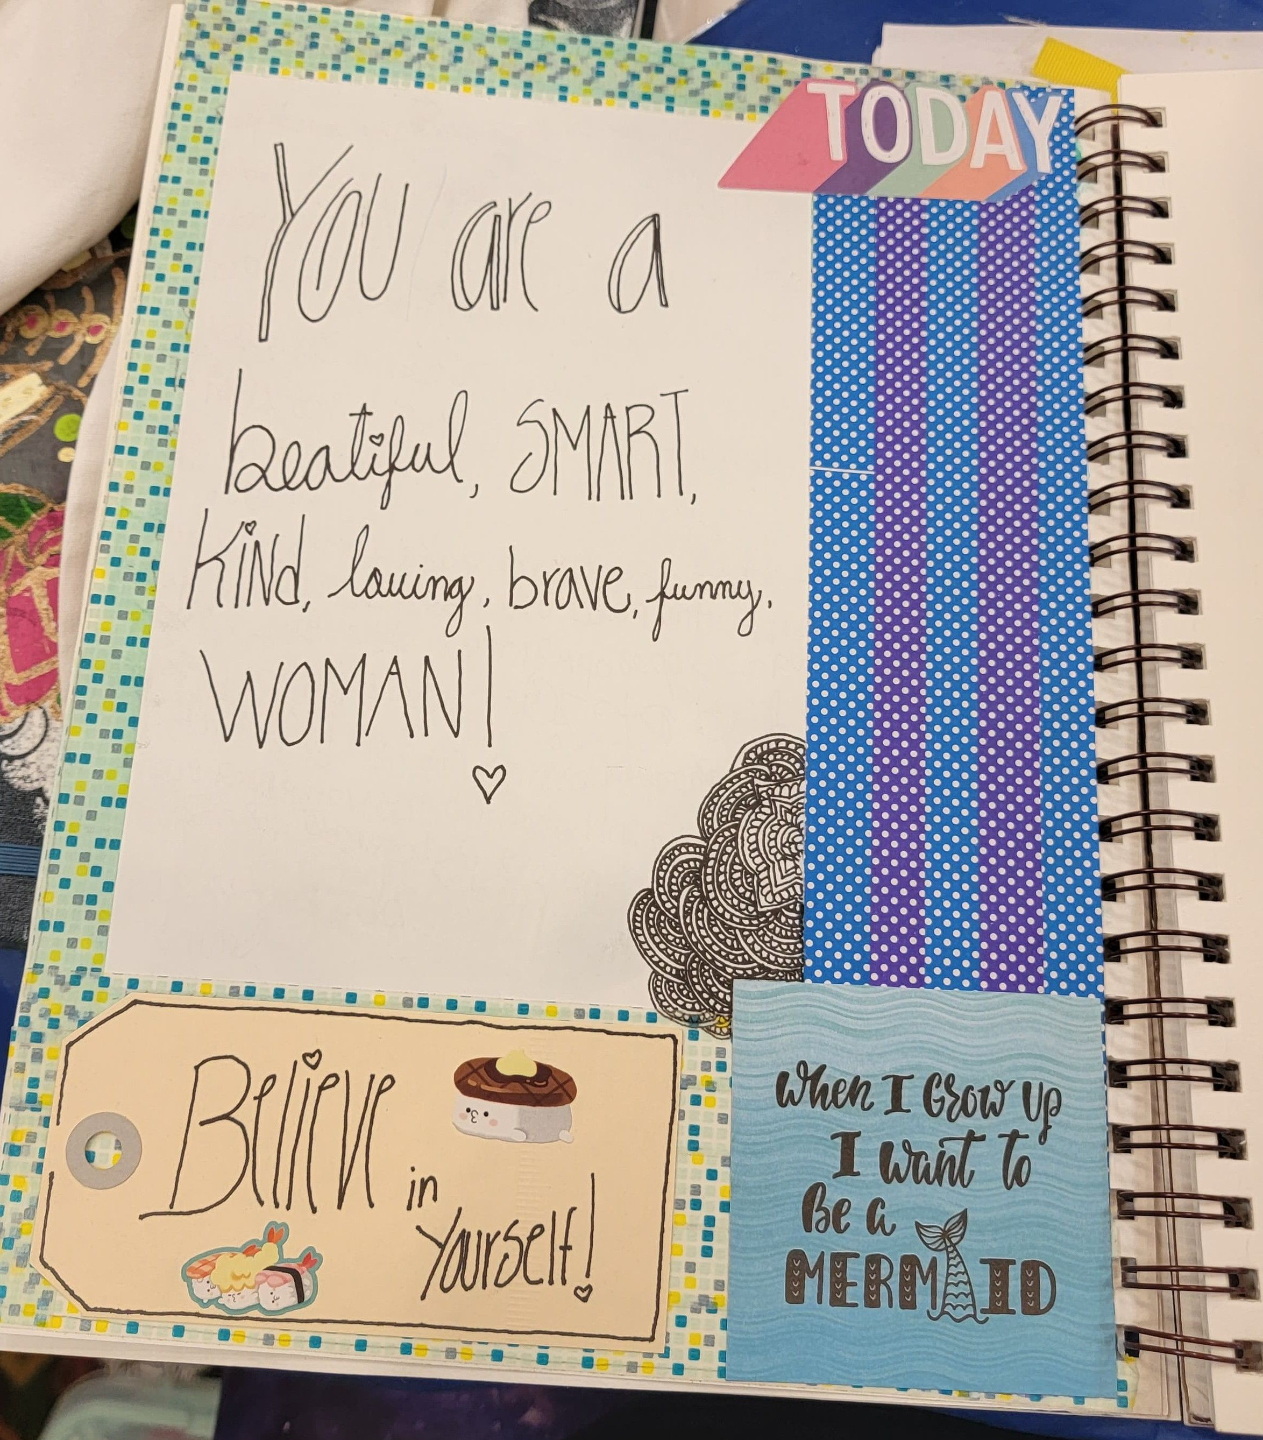 TODAY
You are a
beatiful, SMART,
KiNd, loving, brave, funny,
WOMAN!
Believe
in
Yourself!
When I Grow Up
I want to
Be a
MERMAID